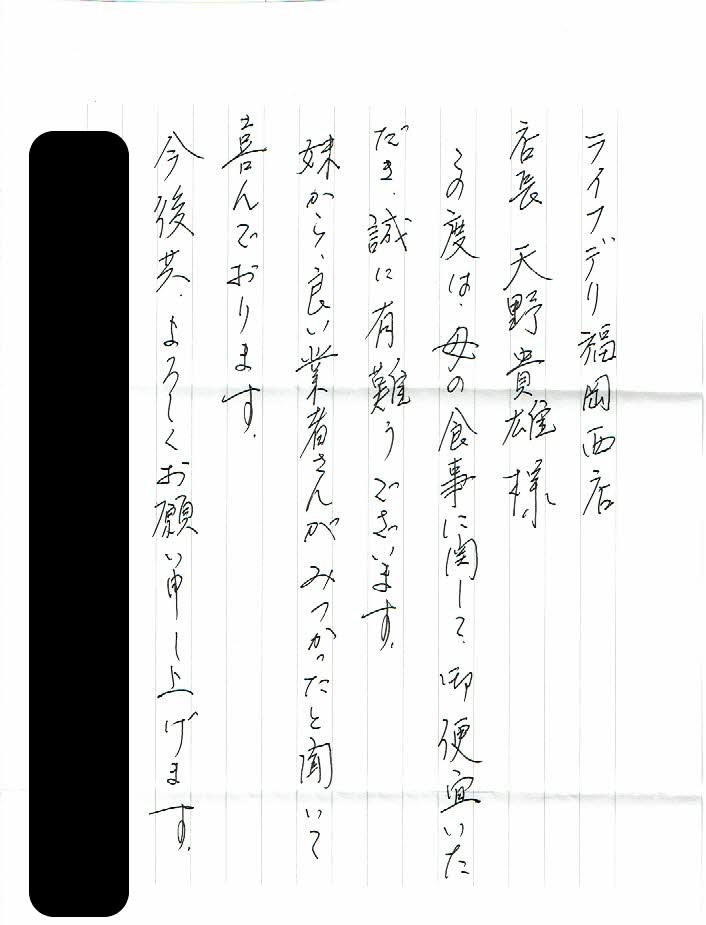 ライフデリ福岡西店
店長 天野貴雄様
この度は、母の食事に関して、御便宜いた
だき、誠に有難うございます。
妹から、良い業者さんがみつかったと聞いて
喜んでおります。
今後共、よろしくお願い申し上げます。